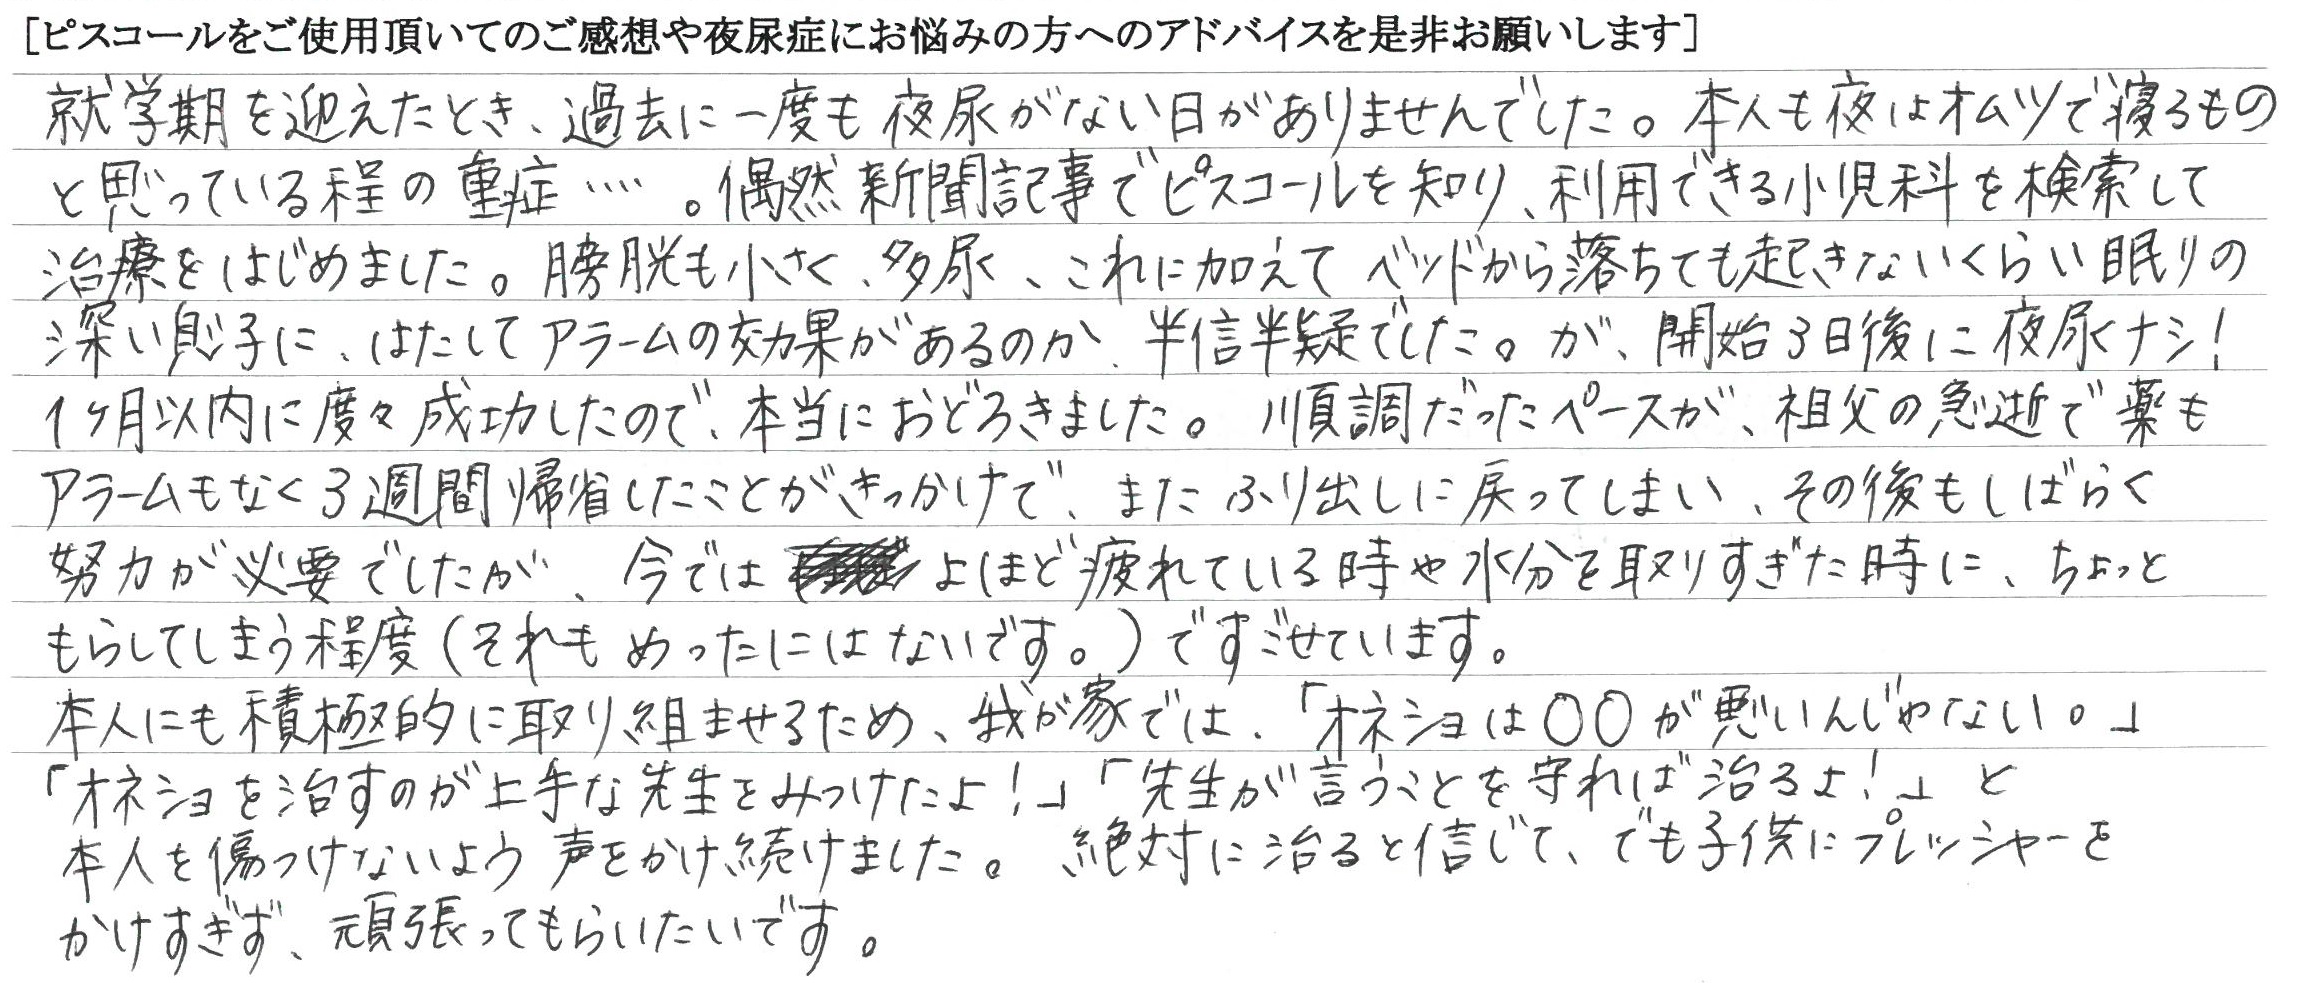 [ピスコールをご使用頂いてのご感想や夜尿症にお悩みの方へのアドバイスを是非お願いします]
就学期を迎えたとき、過去に一度も夜尿がない日がありませんでした。本人も夜はオムツで寝るもの
と思っている程の重症……。偶然新聞記事でピスコールを知り、利用できる小児科を検索して
治療をはじめました。膀胱も小さく、多尿、これに加えてベッドから落ちても起きないくらい眠りの
深い息子に、はたしてアラームの効果があるのか、半信半疑でした。が、開始3日後に夜尿ナシ!
1ヶ月以内に度々成功したので、本当におどろきました。順調だったペースが、祖父の急逝で薬も
アラームもなく3週間帰省したことがきっかけで、またふり出しに戻ってしまい、その後もしばらく
努力が必要でしたが、今ではよほど疲れている時や水分を取りすぎた時に、ちょっと
もらしてしまう程度(それもめったにはないです。)ですごせています。
本人にも積極的に取り組ませるため、我が家では、「オネショは〇〇が悪いんじゃない。」
「オネショを治すのが上手な先生をみつけたよ!」「先生が言うことを守れば治るよ!」と
本人を傷つけないよう声をかけ続けました。絶対に治ると信じて、でも子供にプレッシャーを
かけすぎず、頑張ってもらいたいです。